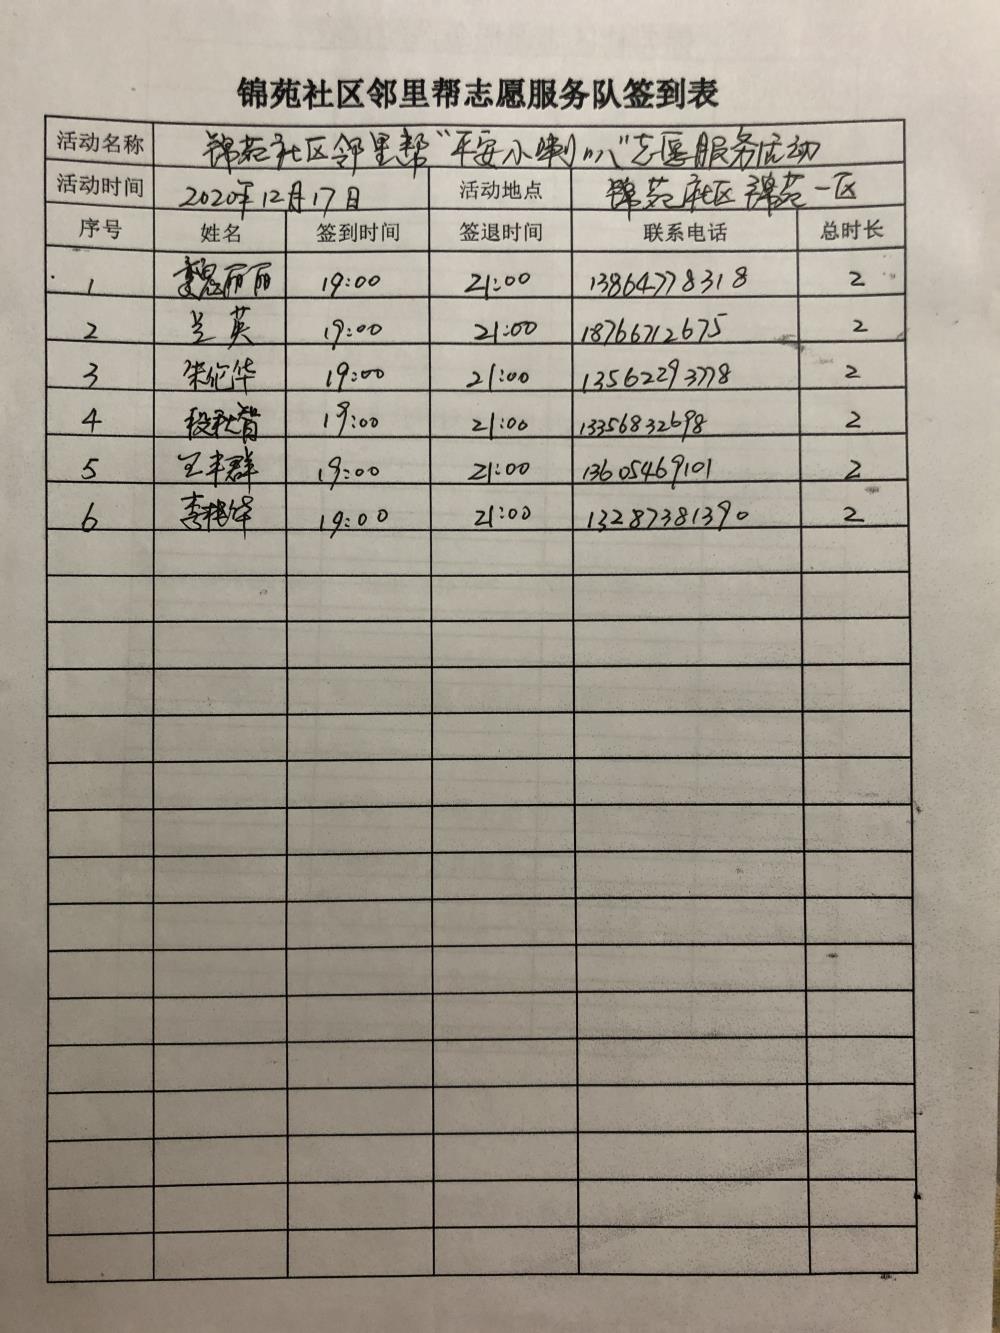 锦苑社区邻里帮志愿服务队签到表
活动名称 锦苑社区邻里帮“平安小喇叭”志愿服务活动
活动时间 2020年12月17日 活动地点 锦苑社区锦苑一区
序号 姓名 签到时间 签退时间 联系电话 总时长
1 魏丽丽 19:00 21:00 13864778318 2
2 兰英 19:00 21:00 18766712675 2
3 朱伦华 19:00 21:00 13562293778 2
4 段智 19:00 21:00 13356832698 2
5 王丰群 19:00 21:00 13605469101 2
6 李华 19:00 21:00 13287381390 2